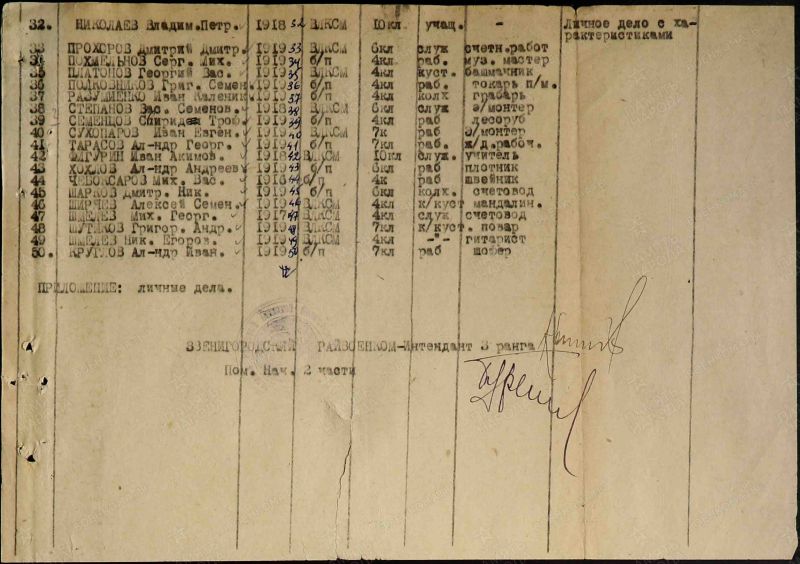 32. НИКОЛАЕВ Владим.Петр. 1918 32 ВЛКСМ 10кл учащ. - Личное дело с ха-
рактеристиками
33 ПРОХОРОВ Дмитрий Дмитр. 1919 33 ВЛКСМ 6кл служ счетн.работ
34. ПОХМЕЛЬНОВ Серг. Мих. 1919 34 б/п 4кл раб. муз. мастер
35 ПЛАТОНОВ Георгий Вас. 1919 35 ВЛКСМ 4кл куст. башмачник
36 ПОЛКОВНИКОВ Григ. Семен. 1919 36 б/п 4кл раб. токарь п/м.
37 Иван Каленик. 1919 37 б/п 4кл колх грабарь
38 СТЕПАНОВ Вас. Семенов. 1918 38 ВЛКСМ 6кл служ э/монтер
39 СЕМЕНЦОВ Спиридон Троф. 1919 39 б/п 4кл раб лесоруб
40 СУХОПАРОВ Иван Евген. 1919 40 ВЛКСМ 7к раб э/монтер
41 ТАРАСОВ Ал-ндр Георг. 1919 41 б/п 7кл раб. ж/д.рабоч.
42 ФИГУРИН Иван Акимов. 1918 42 ВЛКСМ 10кл служ. учитель
43 ХОХЛОВ Ал-ндр Андреев 1919 43 б/п 6кл раб плотник
44 ЧЕБОКСАРОВ Мих. Вас. 1918 44 б/п 4к раб швейник
45 ШАРКОВ Дмитр. Ник. 1919 45 б/п 6кл колх. счетовод
46 Алексей Семен. 1919 46 ВЛКСМ 4кл к/куст мандалин.
47 ШМЕЛЕВ Мих. Георг. 1917 47 ВЛКСМ 4кл служ счетовод
48 ШУТИКОВ Григор. Андр. 1919 48 ВЛКСМ 7кл к/куст. повар
49 ШМЕЛЕВ Ник. Егоров. 1919 49 ВЛКСМ 4кл -"- гитарист
50. КРУГЛОВ Ал-ндр Иван. 1919 50 б/п 7кл раб шофер
ПРИЛОЖЕНИЕ: личные дела.
ЗВЕНИГОРОДСКИЙ РАЙВОЕНКОМ-Интендант 3 ранга
Пом. Нач. 2 части